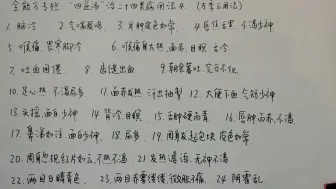 全能方专栏 "四逆汤"治二十四类病用法4 (方香六用法)
1. 脑冷 2. 气喘痰鸣 3. 耳肿皮色如常 4. 唇焦舌黑 不渴少神
5. 喉痛, 畏寒脚冷 6. 喉痛身大热, 面赤, 目瞑 舌冷
7. 吐血困倦 8. 齿缝出血 9. 朝食暮吐, 完谷不化
10. 足心热 不渴尿多 11. 面赤发热 汗出抽掣 12. 大便下血 气短少神
13. 头摇, 面白少神 14. 背冷, 目瞑 15. 舌肿硬而青 16. 唇肿而赤, 不渴
17. 鼻涕如注, 面白少神 18. 尿多 19. 周身发起包块, 皮色如常
20. 周身忽现红片如云, 不热不渴 21. 发热谵语, 无神不渴
22. 两目白睛青色 23. 两目赤雾缕缕, 微胀不痛 24. 阴霍乱